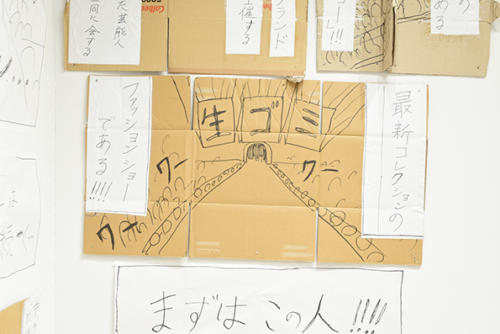 の
ある
ランド
催する
Calbee
た芸能人
一同に会する
最新コレクションの
生ゴミ
ワー
ワー
ワー
ファッションショー
である!!!!
まずはこの人!!!!